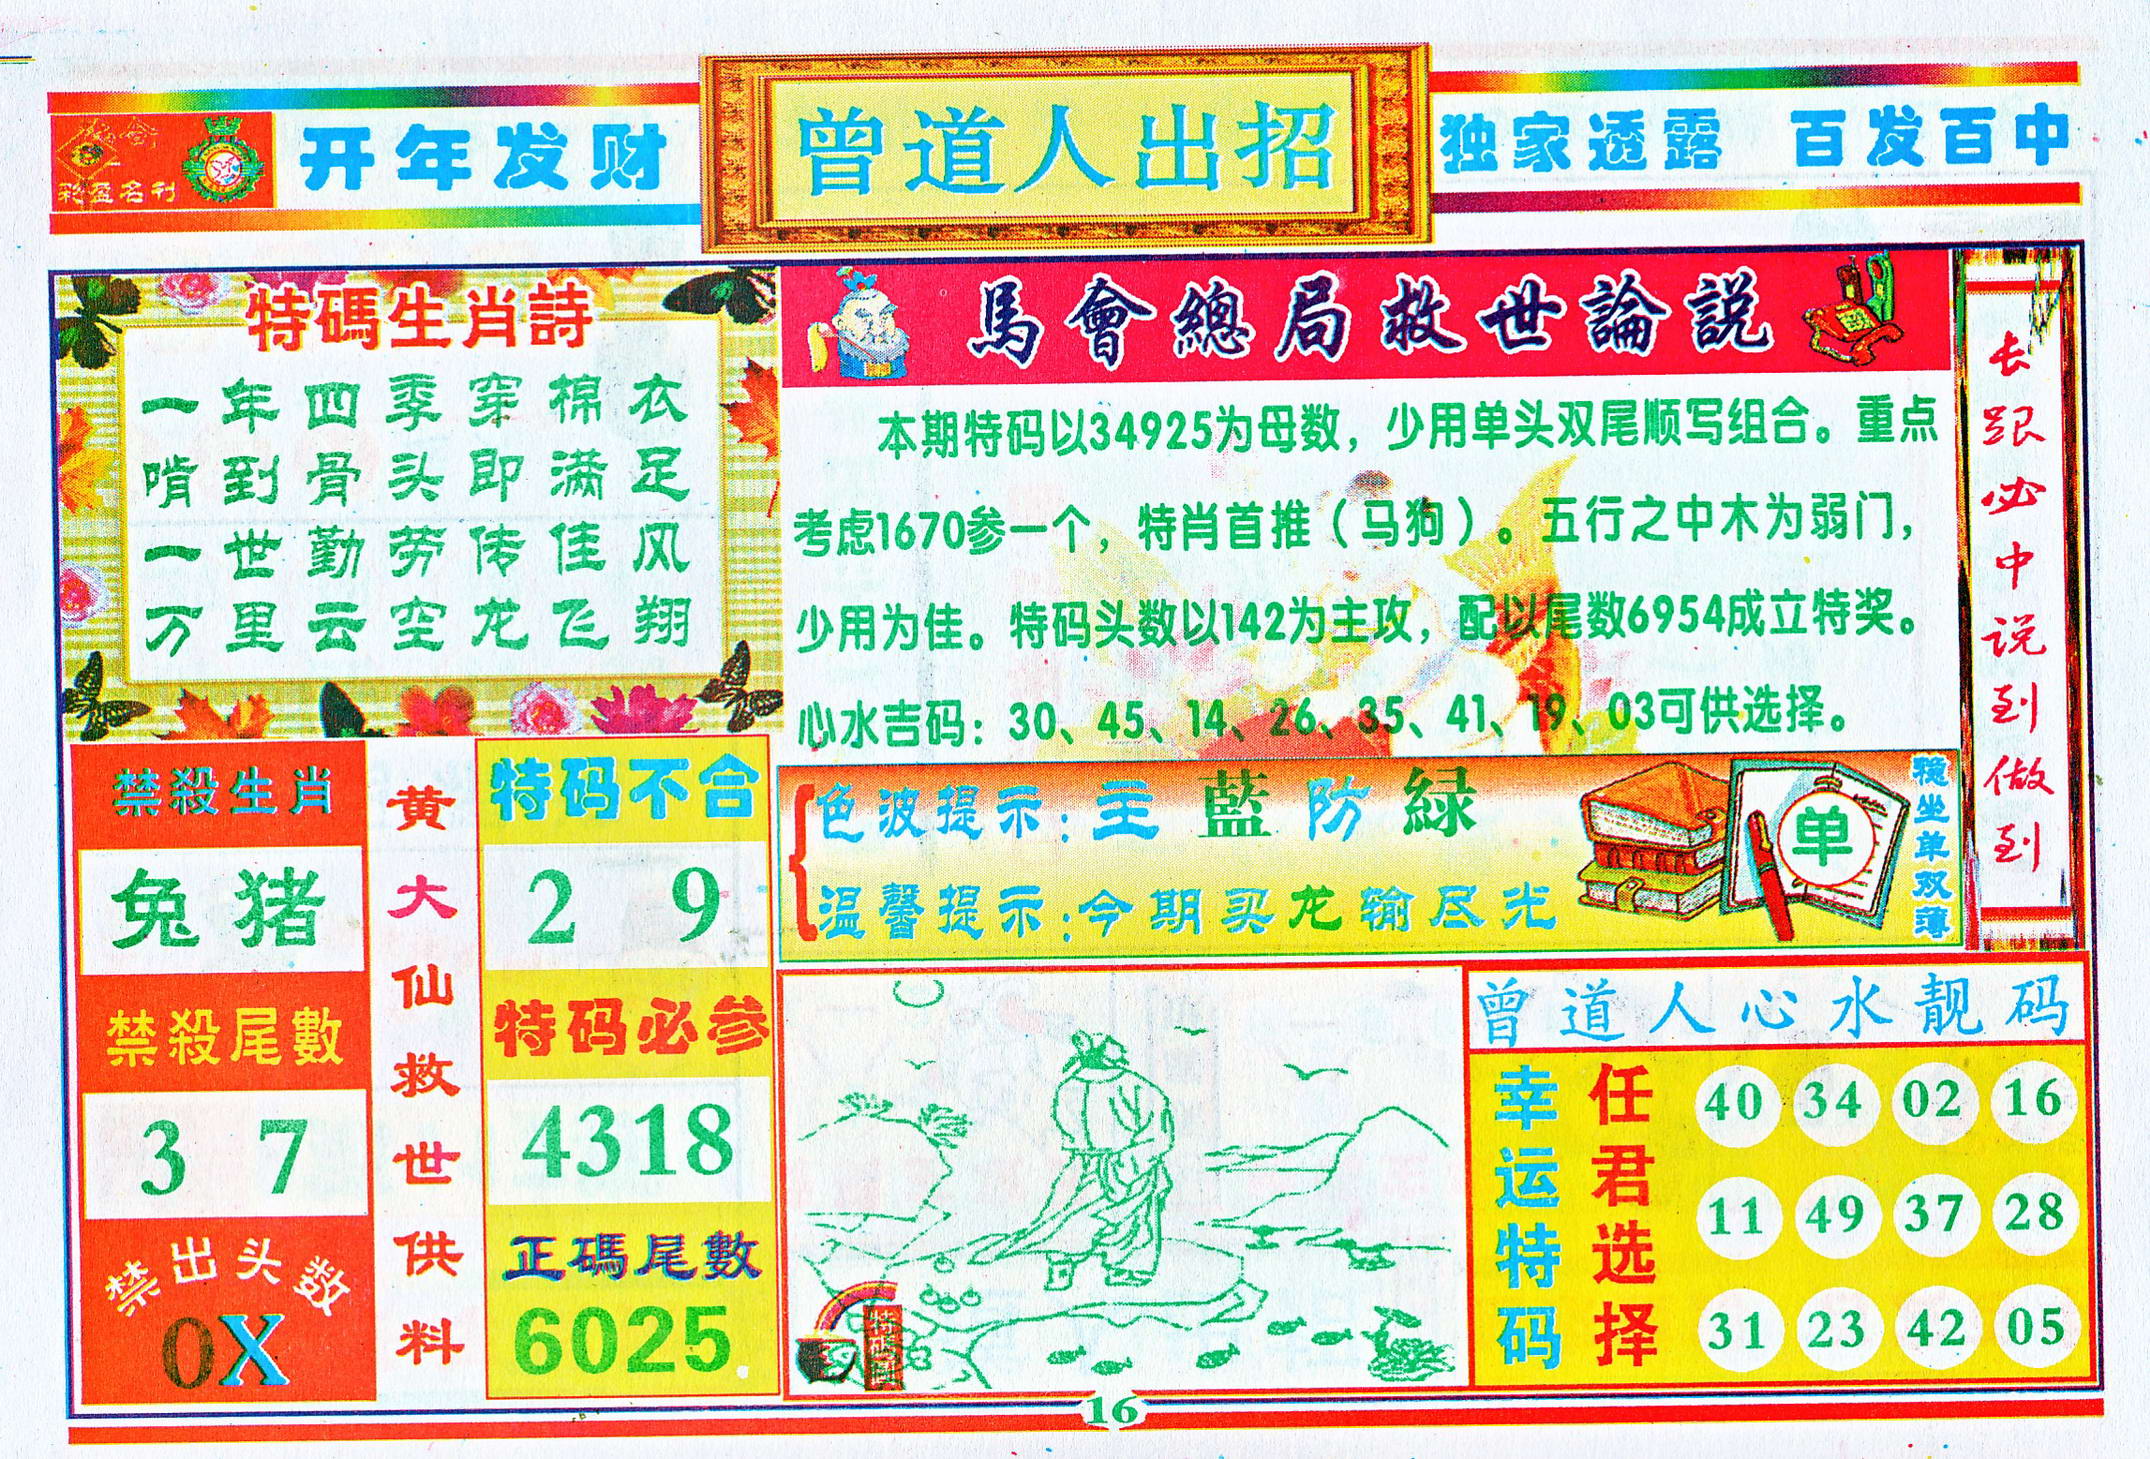 彩盈名刊
开年发财
曾道人出招
独家透露 百发百中
特碼生肖詩
一年四季穿棉衣
啃到骨头即满足
一世勤劳传佳风
万里云空龙飞翔
馬會總局救世論説
本期特码以34925为母数，少用单头双尾顺写组合。重点
考虑1670参一个，特肖首推（马狗）。五行之中木为弱门，
少用为佳。特码头数以142为主攻，配以尾数6954成立特奖。
心水吉码：30、45、14、26、35、41、19、03可供选择。
长跟必中说到做到
禁殺生肖
兔 猪
禁殺尾數
3 7
禁出头数
0X
黄大仙救世供料
特码不合
2 9
特码必参
4318
正碼尾數
6025
色波提示：主藍防緑
温馨提示：今期买龙输尽光
单
稳坐单双薄
曾道人心水靓码
幸运特码
任君选择
40 34 02 16
11 49 37 28
31 23 42 05
16